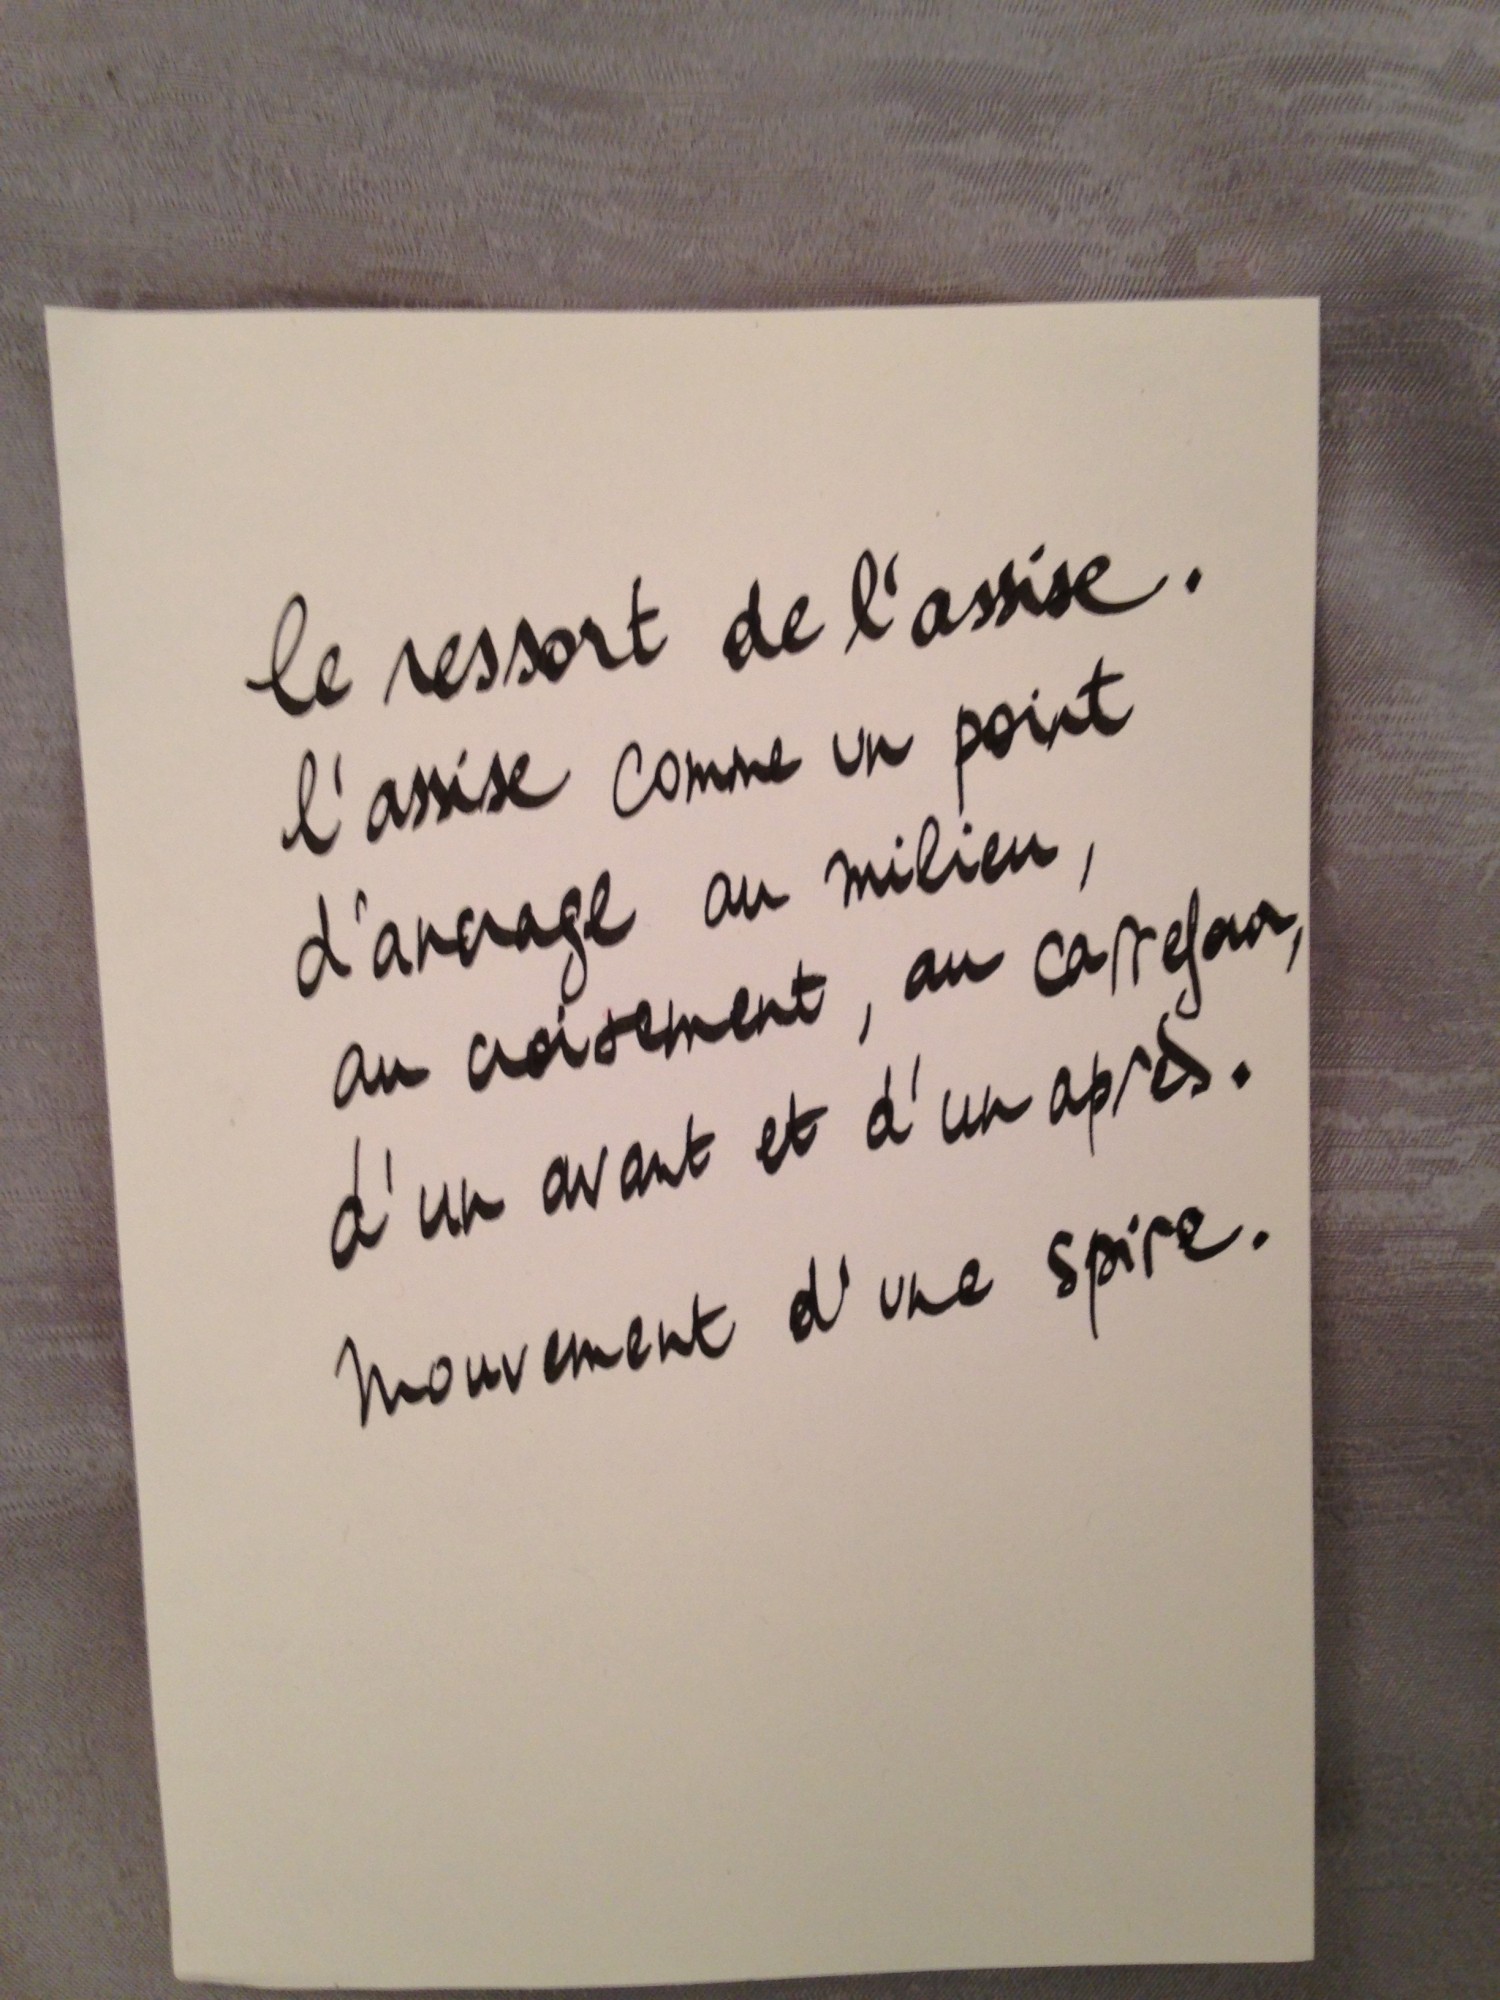 le ressort de l'assise.
l'assise comme un point
d'ancrage au milieu,
au croisement, au carrefour,
d'un avant et d'un après.
Mouvement d'une spire.